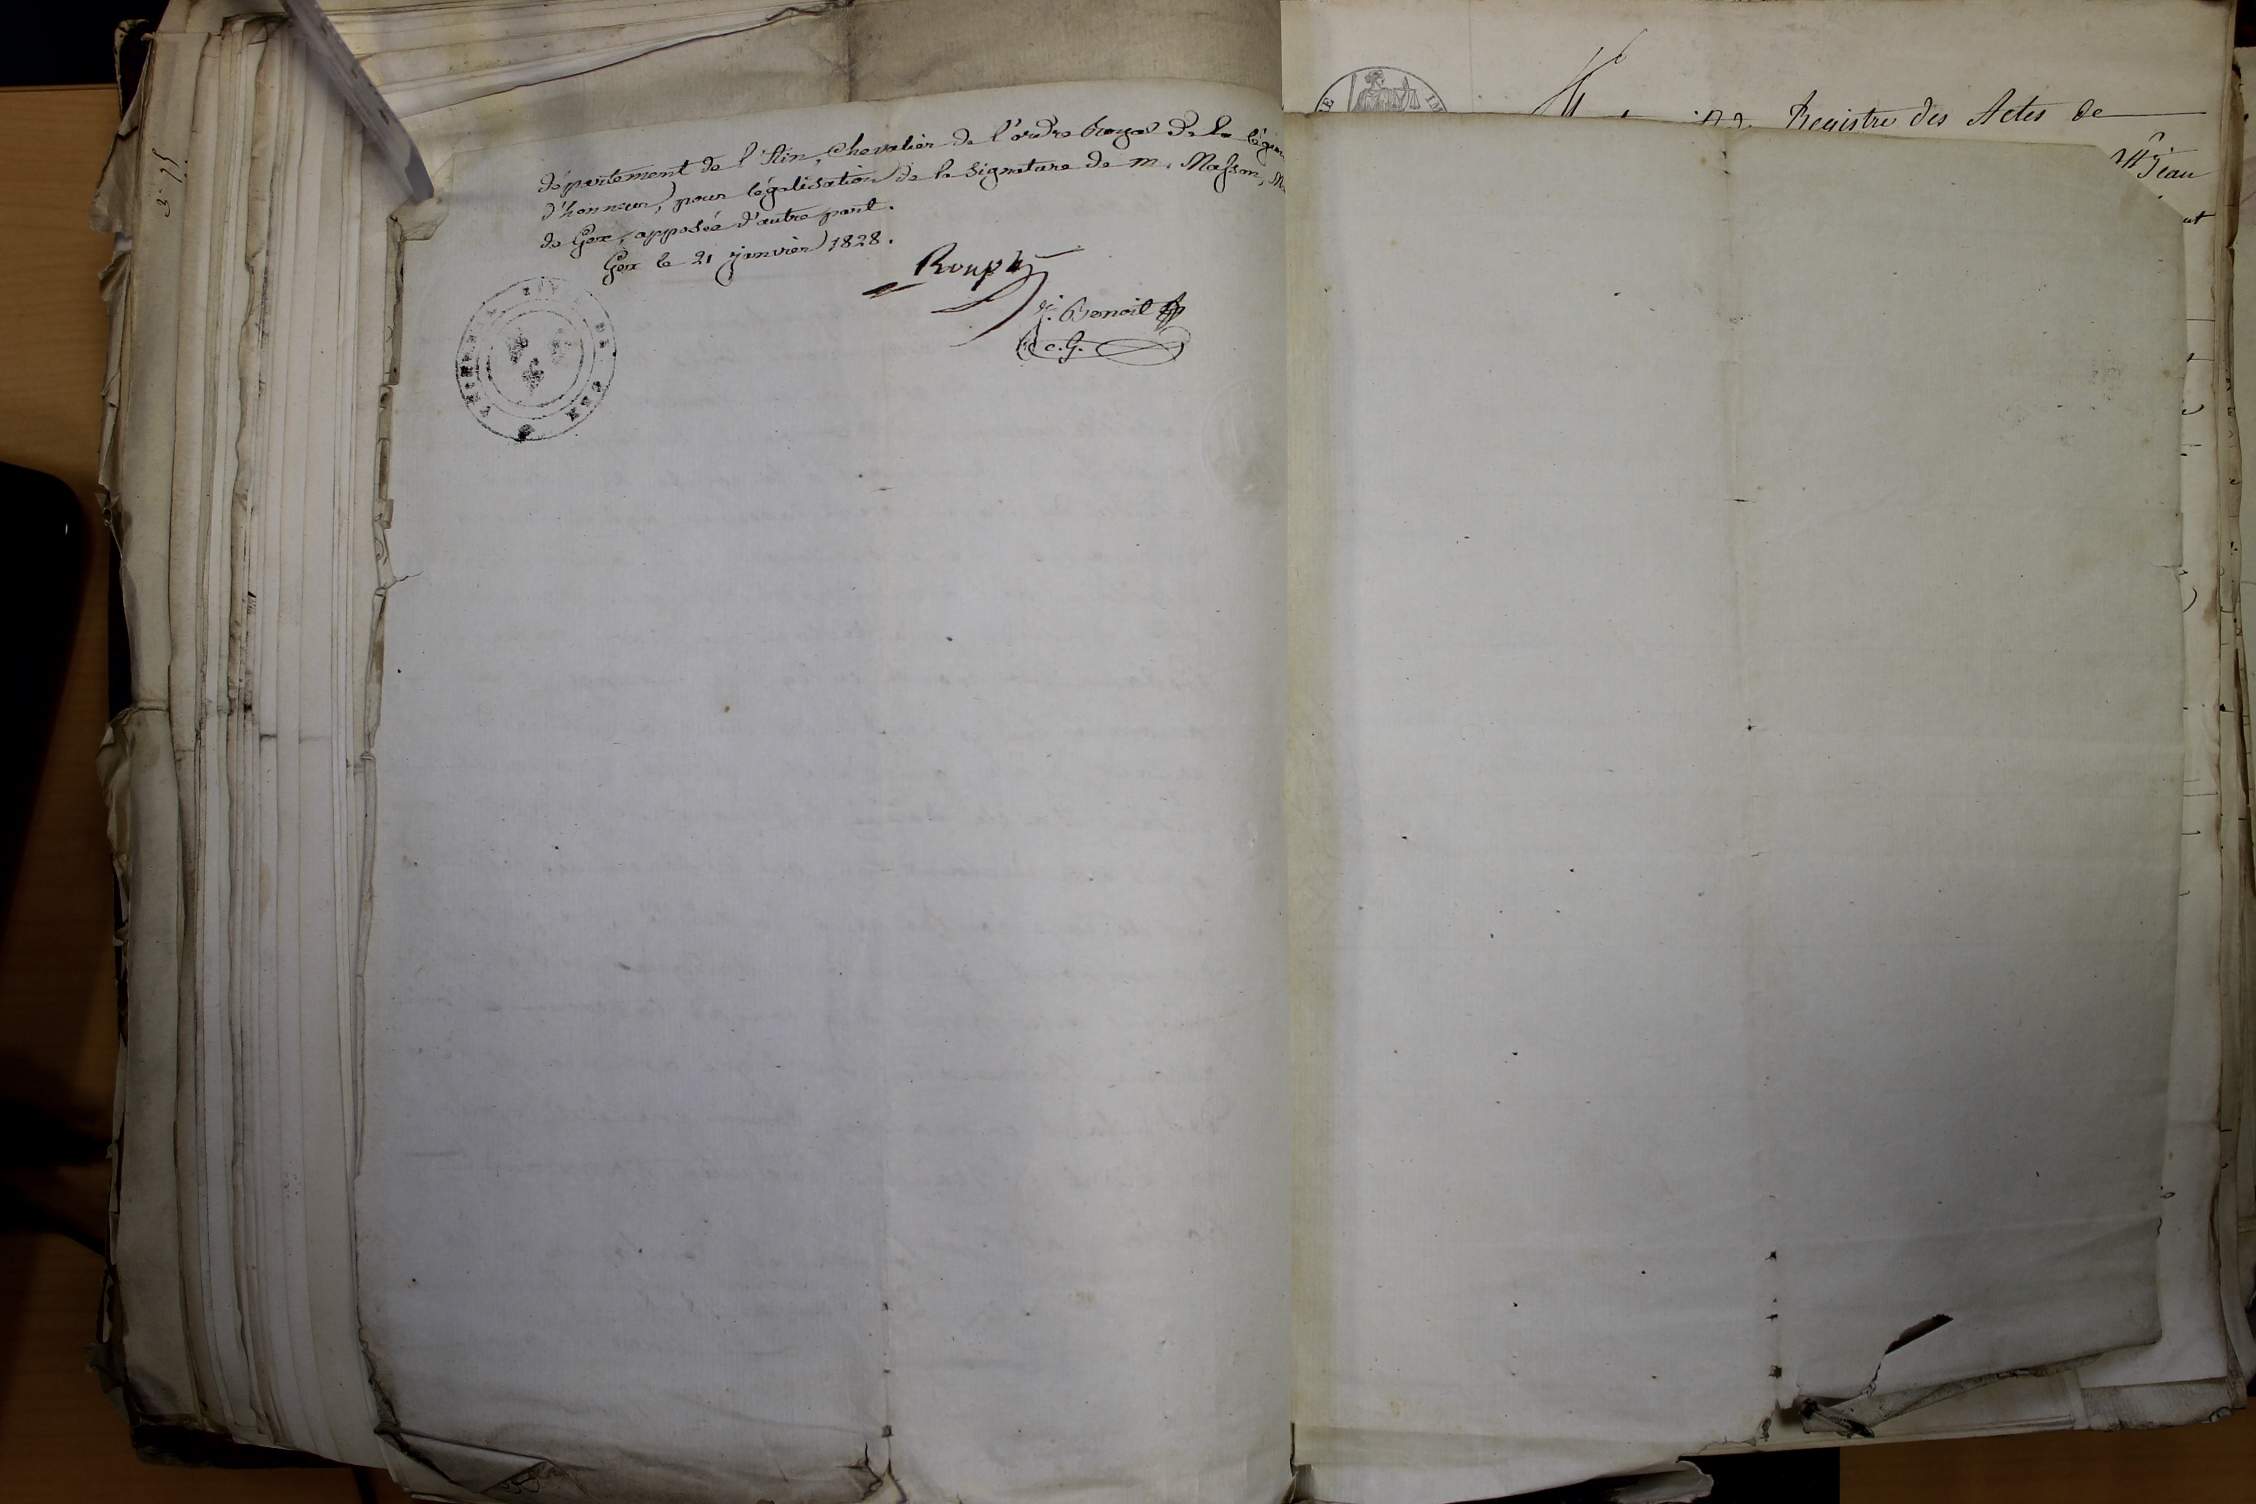 département de l'Ain, Chevalier de l'ordre Royal de la légion
d'honneur, pour légalisation de la signature de m. Masson, M
de Gex, apposée d'autre part.
Gex le 21 janvier 1828.
J. Benoit
c. G.
DE GEX
Registre des Actes de
Jean